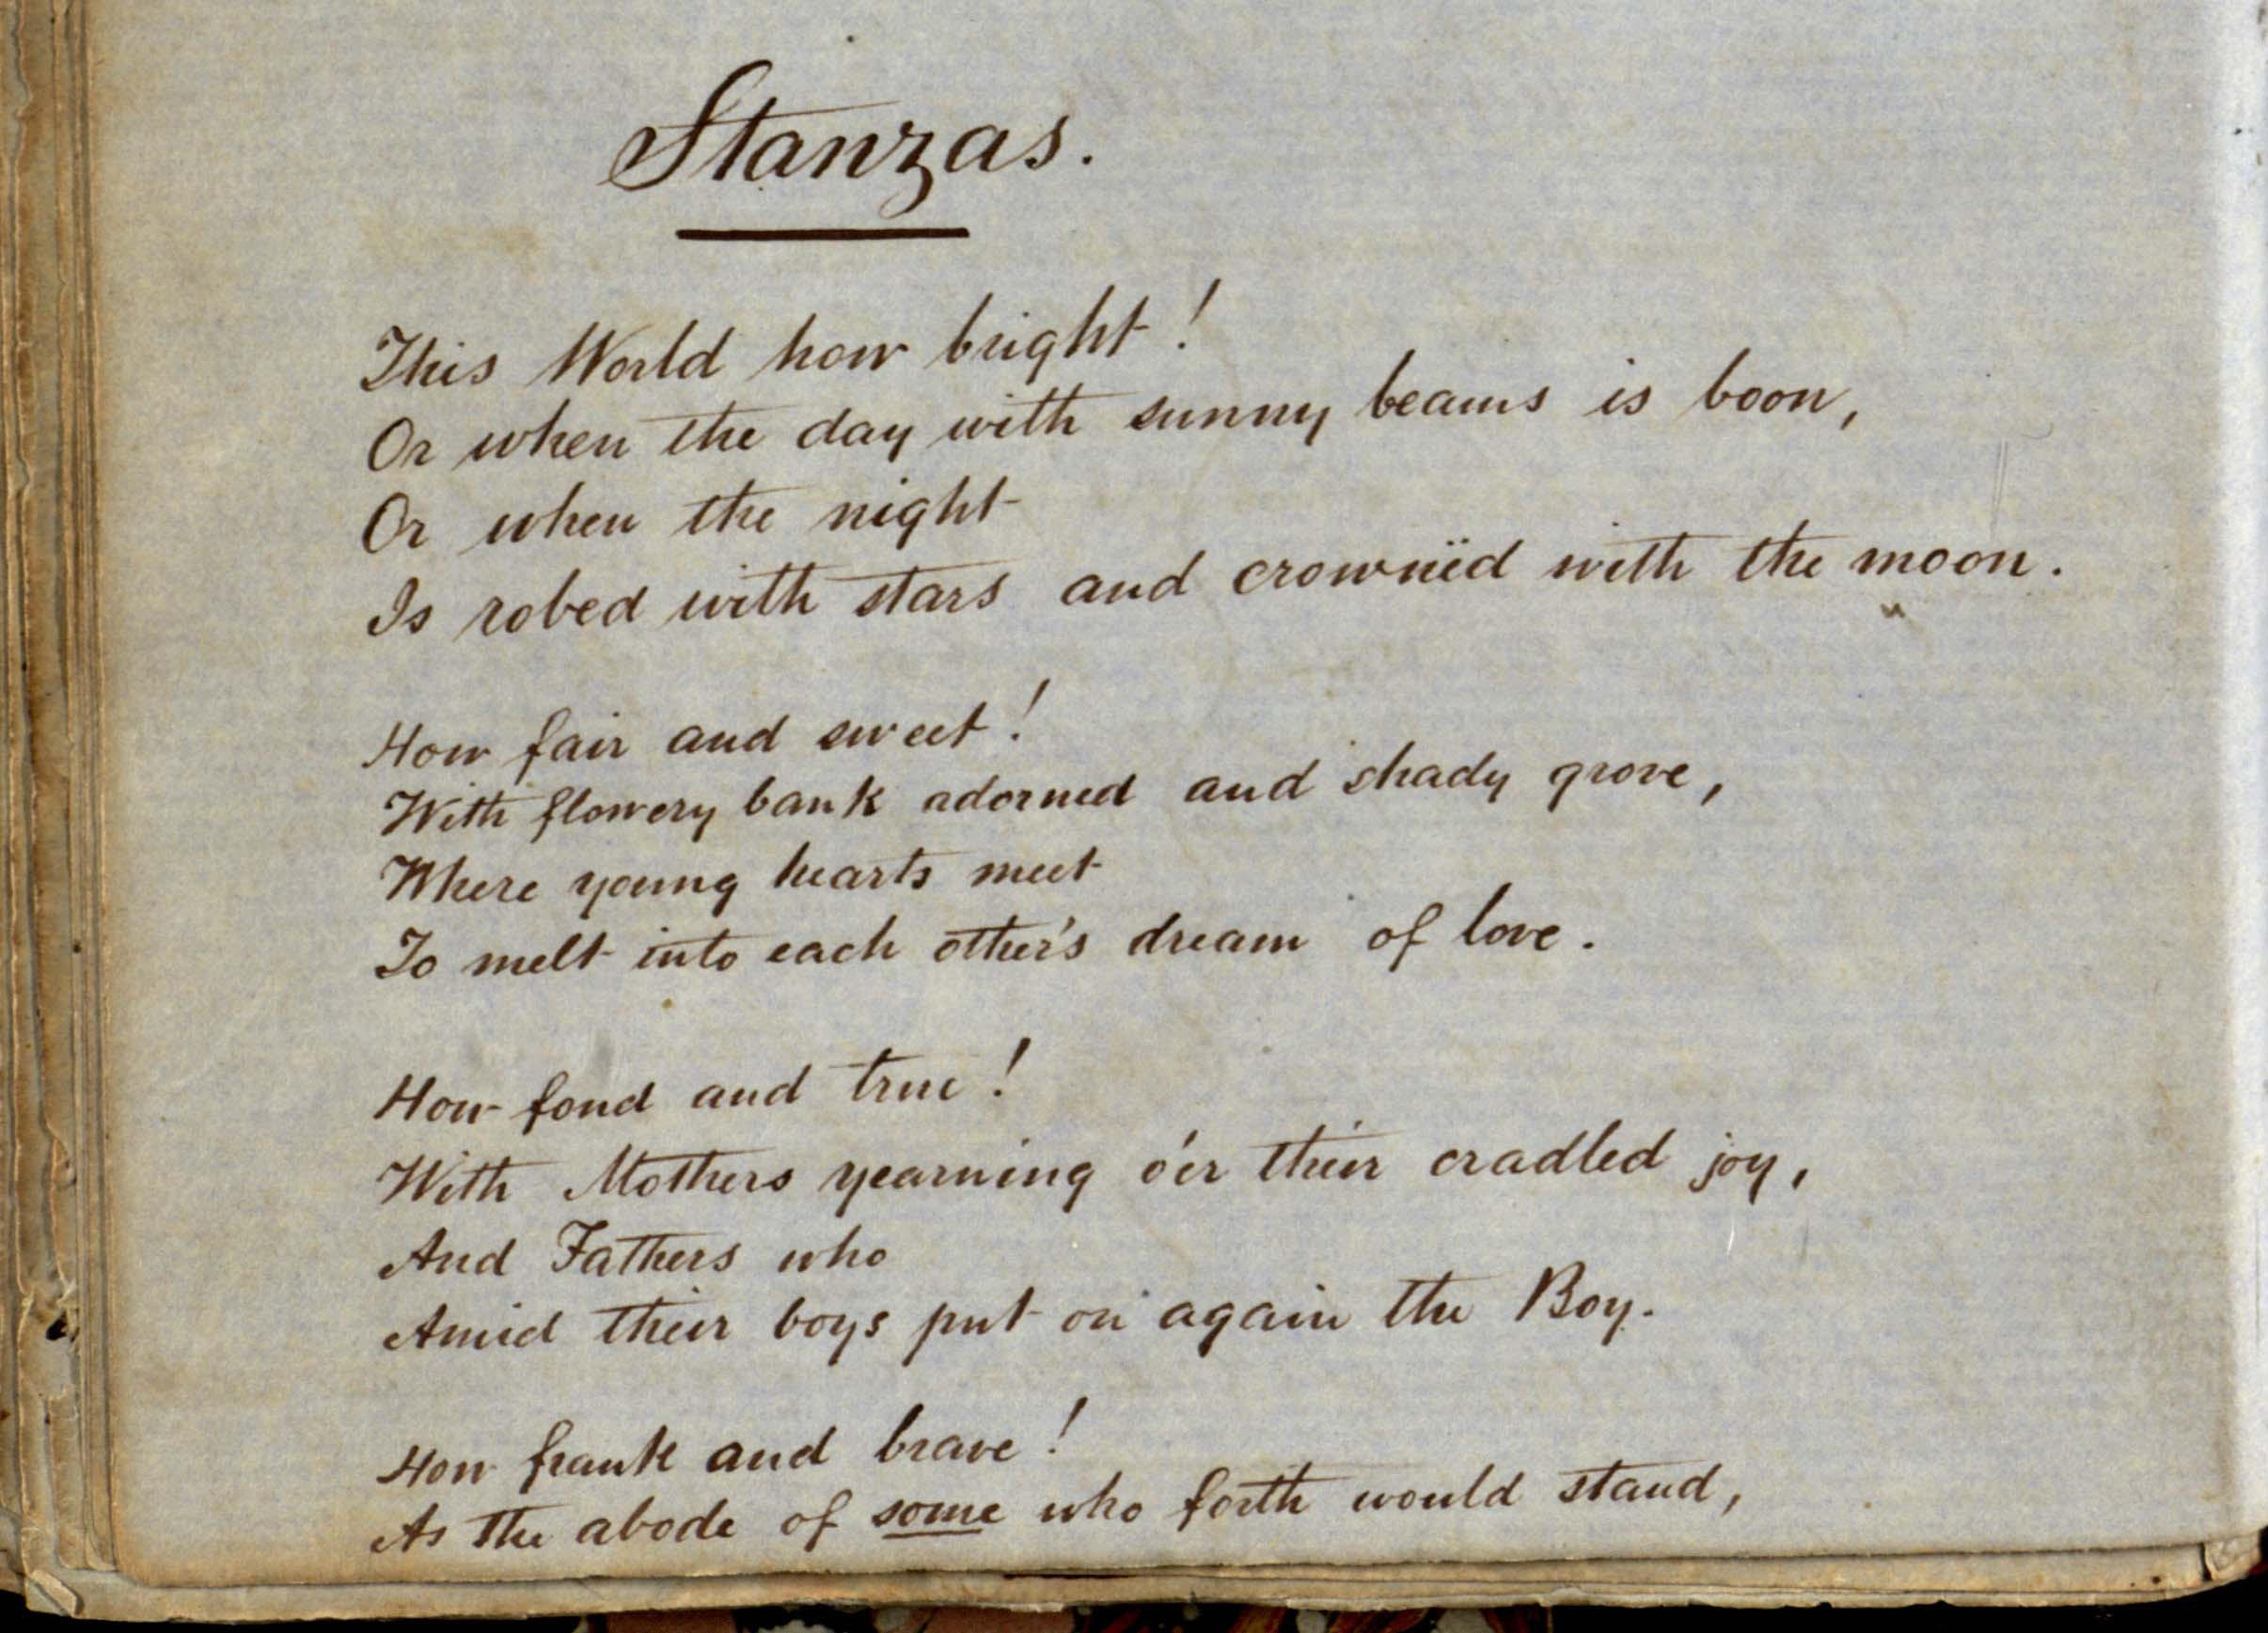 Stanzas.
This World how bright!
Or when the day with sunny beams is boon,
Or when the night
Is robed with stars and crownëd with the moon.
How fair and sweet!
With flowery bank adorned and shady grove,
Where young hearts meet
To melt into each other's dream of love.
How fond and true!
With Mothers yearning o'er their cradled joy,
And Fathers who
Amid their boys put on again the Boy.
How frank and brave!
As the abode of some who forth would stand,